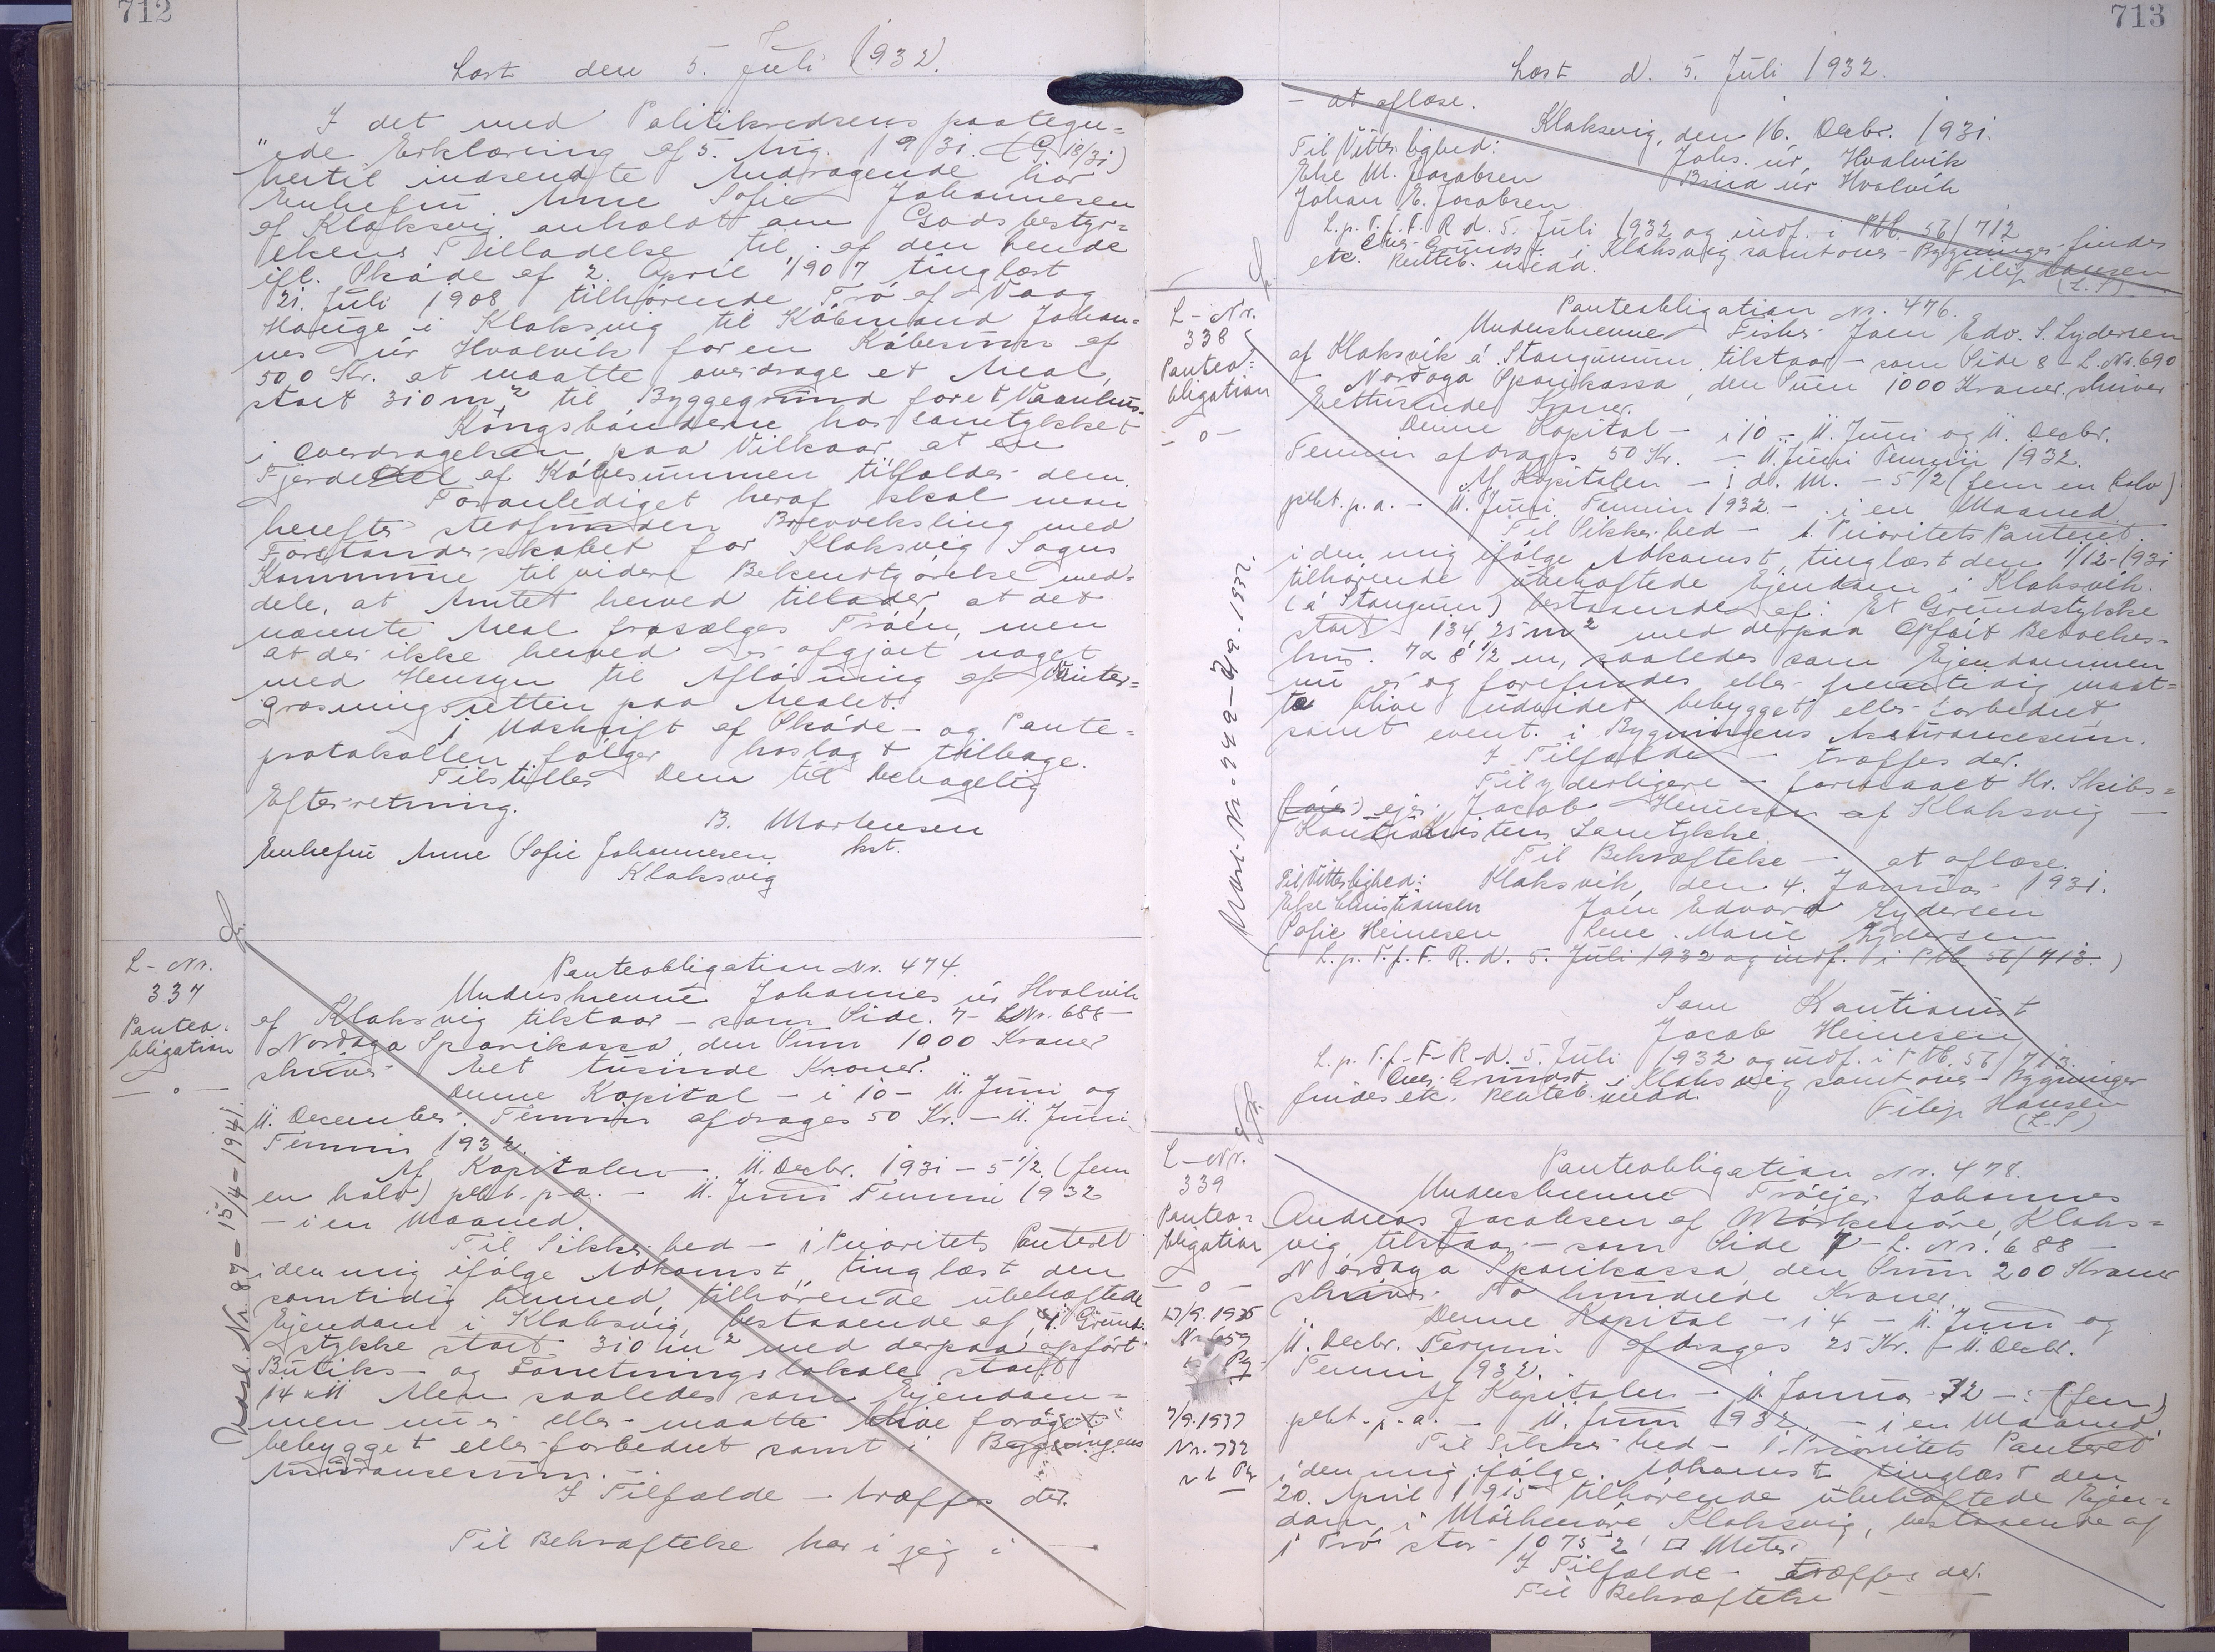 712
Læst den 5. Juli 1932.
I det med Politikredsens paategn=
"ede Erklæring af 5. Aug. 1931.
hertil indsendte Andragende har
Enkefru Anne Sofie Johannesen
af Klaksvig anholdt om Godsbestyr=
elsens Tilladelse til af den hende
ifl. Skøde af 2. April 1907 tinglæst
21. Juli 1908 tilhørende Trø af Vaag
Hauge i Klaksvig til Købmand Johan=
nes úr Hvalvik for en Købesum af
500 Kr. at maatte overdrage et Areal,
stort 310 m² til Byggegrund for et Vaanhus.
Kongsbønderne har samtykket
i Overdragelsen paa Vilkaar at en
Fjerdedel af Købesummen tilfalder dem.
Foranlediget heraf skal man
herefter stedfunden Brevveksling med
Forstanderskabet for Klaksvig Sogns
Kommune til videre Bekendtgørelse med=
dele, at Amtet herved tillader, at det
nævnte Areal frasælges Trøen, men
at der ikke herved er afgjort noget
med Hensyn til Afløsning af Vinter=
græsningsretten paa Arealet.
1 Udskrift af Skøde- og Pante=
protokollen følger hoslagt tilbage.
Tilstilles Dem til behagelig
Efterretning.
B. Mortensen
kst.
Enkefru Anne Sofie Johannesen
Klaksvig
L-Nr.
337
Panteo=
bligation
— o —
Udsl. Nr. 87 - 15/4 - 1941
Panteobligation Nr. 474.
Underskrevne Johannes úr Hvalvik
af Klaksvig tilstaar - som Side. 7 - L.Nr. 688 -
Norðoya Sparikassa, den Sum 1000 Kroner
skriver Eet tusinde Kroner.
Denne Kapital - i 10 - 11. Juni og
11. December Termin afdrages 50 Kr. - 11. Juni
Termin 1932.
Af Kapitalen - 11. Decbr. 1931 - 5 1/2 (fem
en halv) pCt. p.a. - 11. Juni Termin 1932
- i en Maaned.
Til Sikkerhed - 1 Prioritets Panteret
i den mig ifølge Adkomst, tinglæst den
samtidig hermed, tilhørende ubehæftede
Ejendom i Klaksvig, bestaaende af 1 Grund=
stykke stort 310 m² med derpaa opført
Butiks- og Forretningslokale stort
14 x 11 Alen saaledes som Ejendom=
men nu er eller maatte blive forøget
bebygget eller forbedret samt i Bygningens
Assurancesum.
I Tilfælde - træffes der.
Til Bekræftelse har jeg
713
Læst d. 5. Juli 1932.
- at aflæse.
Klaksvig, den 16. Decbr. 1931.
Til Vitterlighed:
Johs. úr Hvalvik
Else M. Jacobsen
Brina úr Hvalvik
Johan E. Jacobsen
L.p. T.f. F. R d. 5. Juli 1932 og indf. i Ptb. 56/712
Over Grundst. i Klaksvig samt over Bygninger findes
etc. Reateb. medd.
Filip Hansen
(L.S)
L-Nr.
338
Panteo=
bligation
- o -
Panteobligation Nr. 476.
Underskrevne Fisker Joen Edv. S. Lydersen
af Klaksvik á Stangunum, tilstaar - som Side 8 - L. Nr. 690
- Norðoya Sparikassa, den Sum 1000 Kroner, skriver
Eettusinde Kroner.
Denne Kapital - i 10 - 11. Juni og 11. Decbr.
Termin afdrages 50 Kr. - 11. Juni Termin 1932.
Af Kapitalen - : d. M. - 5 1/2 (fem en halv)
pCt. p.a. - 11. Juni Termin 1932. - i en Maaned
Til Sikkerhed - 1. Prioritets Panteret
i den mig ifølge Adkomst, tinglæst den 1/12-1931
tilhørende ubehæftede Ejendom i Klaksvik.
(á Stangum) bestaaende af: Et Grundstykke
stort 134,25 m² med derpaa Opført Beboelses=
hus. 7 x 8 1/2 m, saaledes som Ejendommen
nu er og forefindes eller fremtidig maat=
te blive udvidet bebygget eller forbedret
samt event. i Bygningens Assurancesum.
I Tilfælde - træffes der.
Til yderligere - forestaaet Hr. Skibs=
ejer Jacob Heinesen af Klaksvig -
Kautionistens Samtykke.
Til Bekræftelse - at aflæse.
Til Vitterlighed: Klaksvik, den 4. Januar 1931.
Else Christiansen Joen Edvard Lydersen
Sofie Heinesen Lene Marie Lydersen
(L.p. T.f. F. R. d. 5. Juli 1932 og indf. i Ptb. 56/713.)
Som Kautionist
Jacob Heinesen
L.p. T.f. F. R. d. 5. Juli 1932 og indf. i Ptb. 56/713.
Over Grundst. i Klaksvig samt over Bygninger
findes etc. Reateb. medd.
Filip Hansen
(L.S)
L-Nr.
339
Panteo=
bligation
- o -
7/9.1937
Nr. 732
Panteobligation Nr. 478.
Underskrevne Trøejer Johannes
Andreas Jacobsen af Mørkenøre, Klaks=
vig, tilstaar - som Side 7 - L. Nr. 688 -
Norðoya Sparikassa, den Sum 200 Kroner
skriver To hundrede Kroner.
Denne Kapital - i 4 - 11. Juni og
11. Decbr. Termin afdrages 25 Kr. - 11. Decbr.
Termin 1932.
Af Kapitalen - 11. Januar 32 - : (fem)
pCt. p.a. - 11. Juni 1932. - i en Maaned.
Til Sikkerhed - 1. Prioritets Panteret
i den mig ifølge Adkomst tinglæst den
20. April 1915 tilhørende ubehæftede Ejen=
dom i Mørkenøre Klaksvig, bestaaende af
1 Trø stor 10752 □ Meter
I Tilfælde - træffes der.
Til Bekræftelse